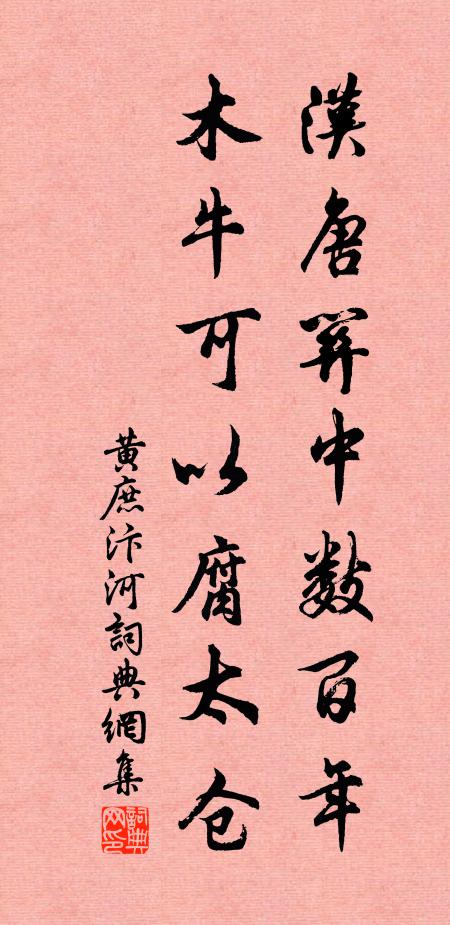 漢唐關中数百年
木牛可以腐太仓
黃庶汴河詞典網集
詞典网印